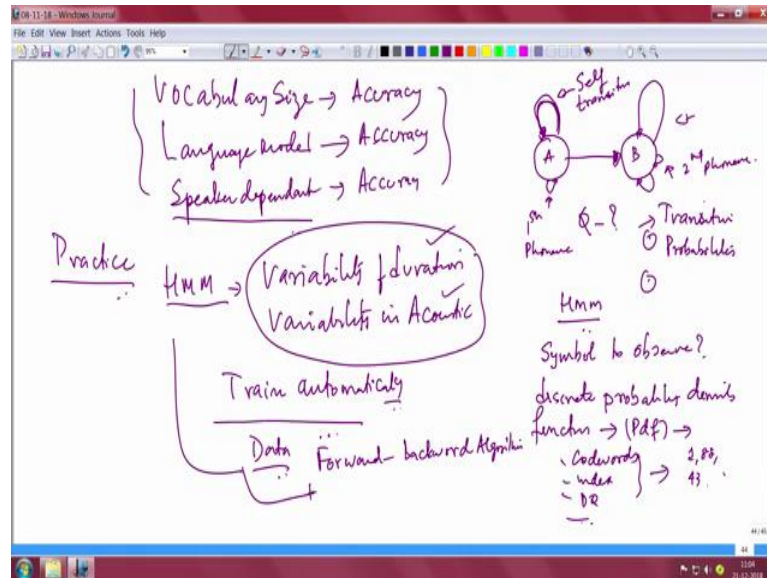 08-11-18 - Windows Journal
File Edit View Insert Actions Tools Help
Vocabulary Size → Accuracy
Language model → Accuracy
Speaker dependant → Accuracy
Practice
HMM → Variability of duration
Variability in Acoustic
Train automatically
Data Forward-backward Algorithm
Self
transition
A
B
1st
Phoneme
2nd phoneme.
Q-? → Transition
Probabilities
Hmm
Symbol to observe?
discrete probability density
function → (Pdf) →
Codewords
index
→
43
44
11:04
21-12-2018